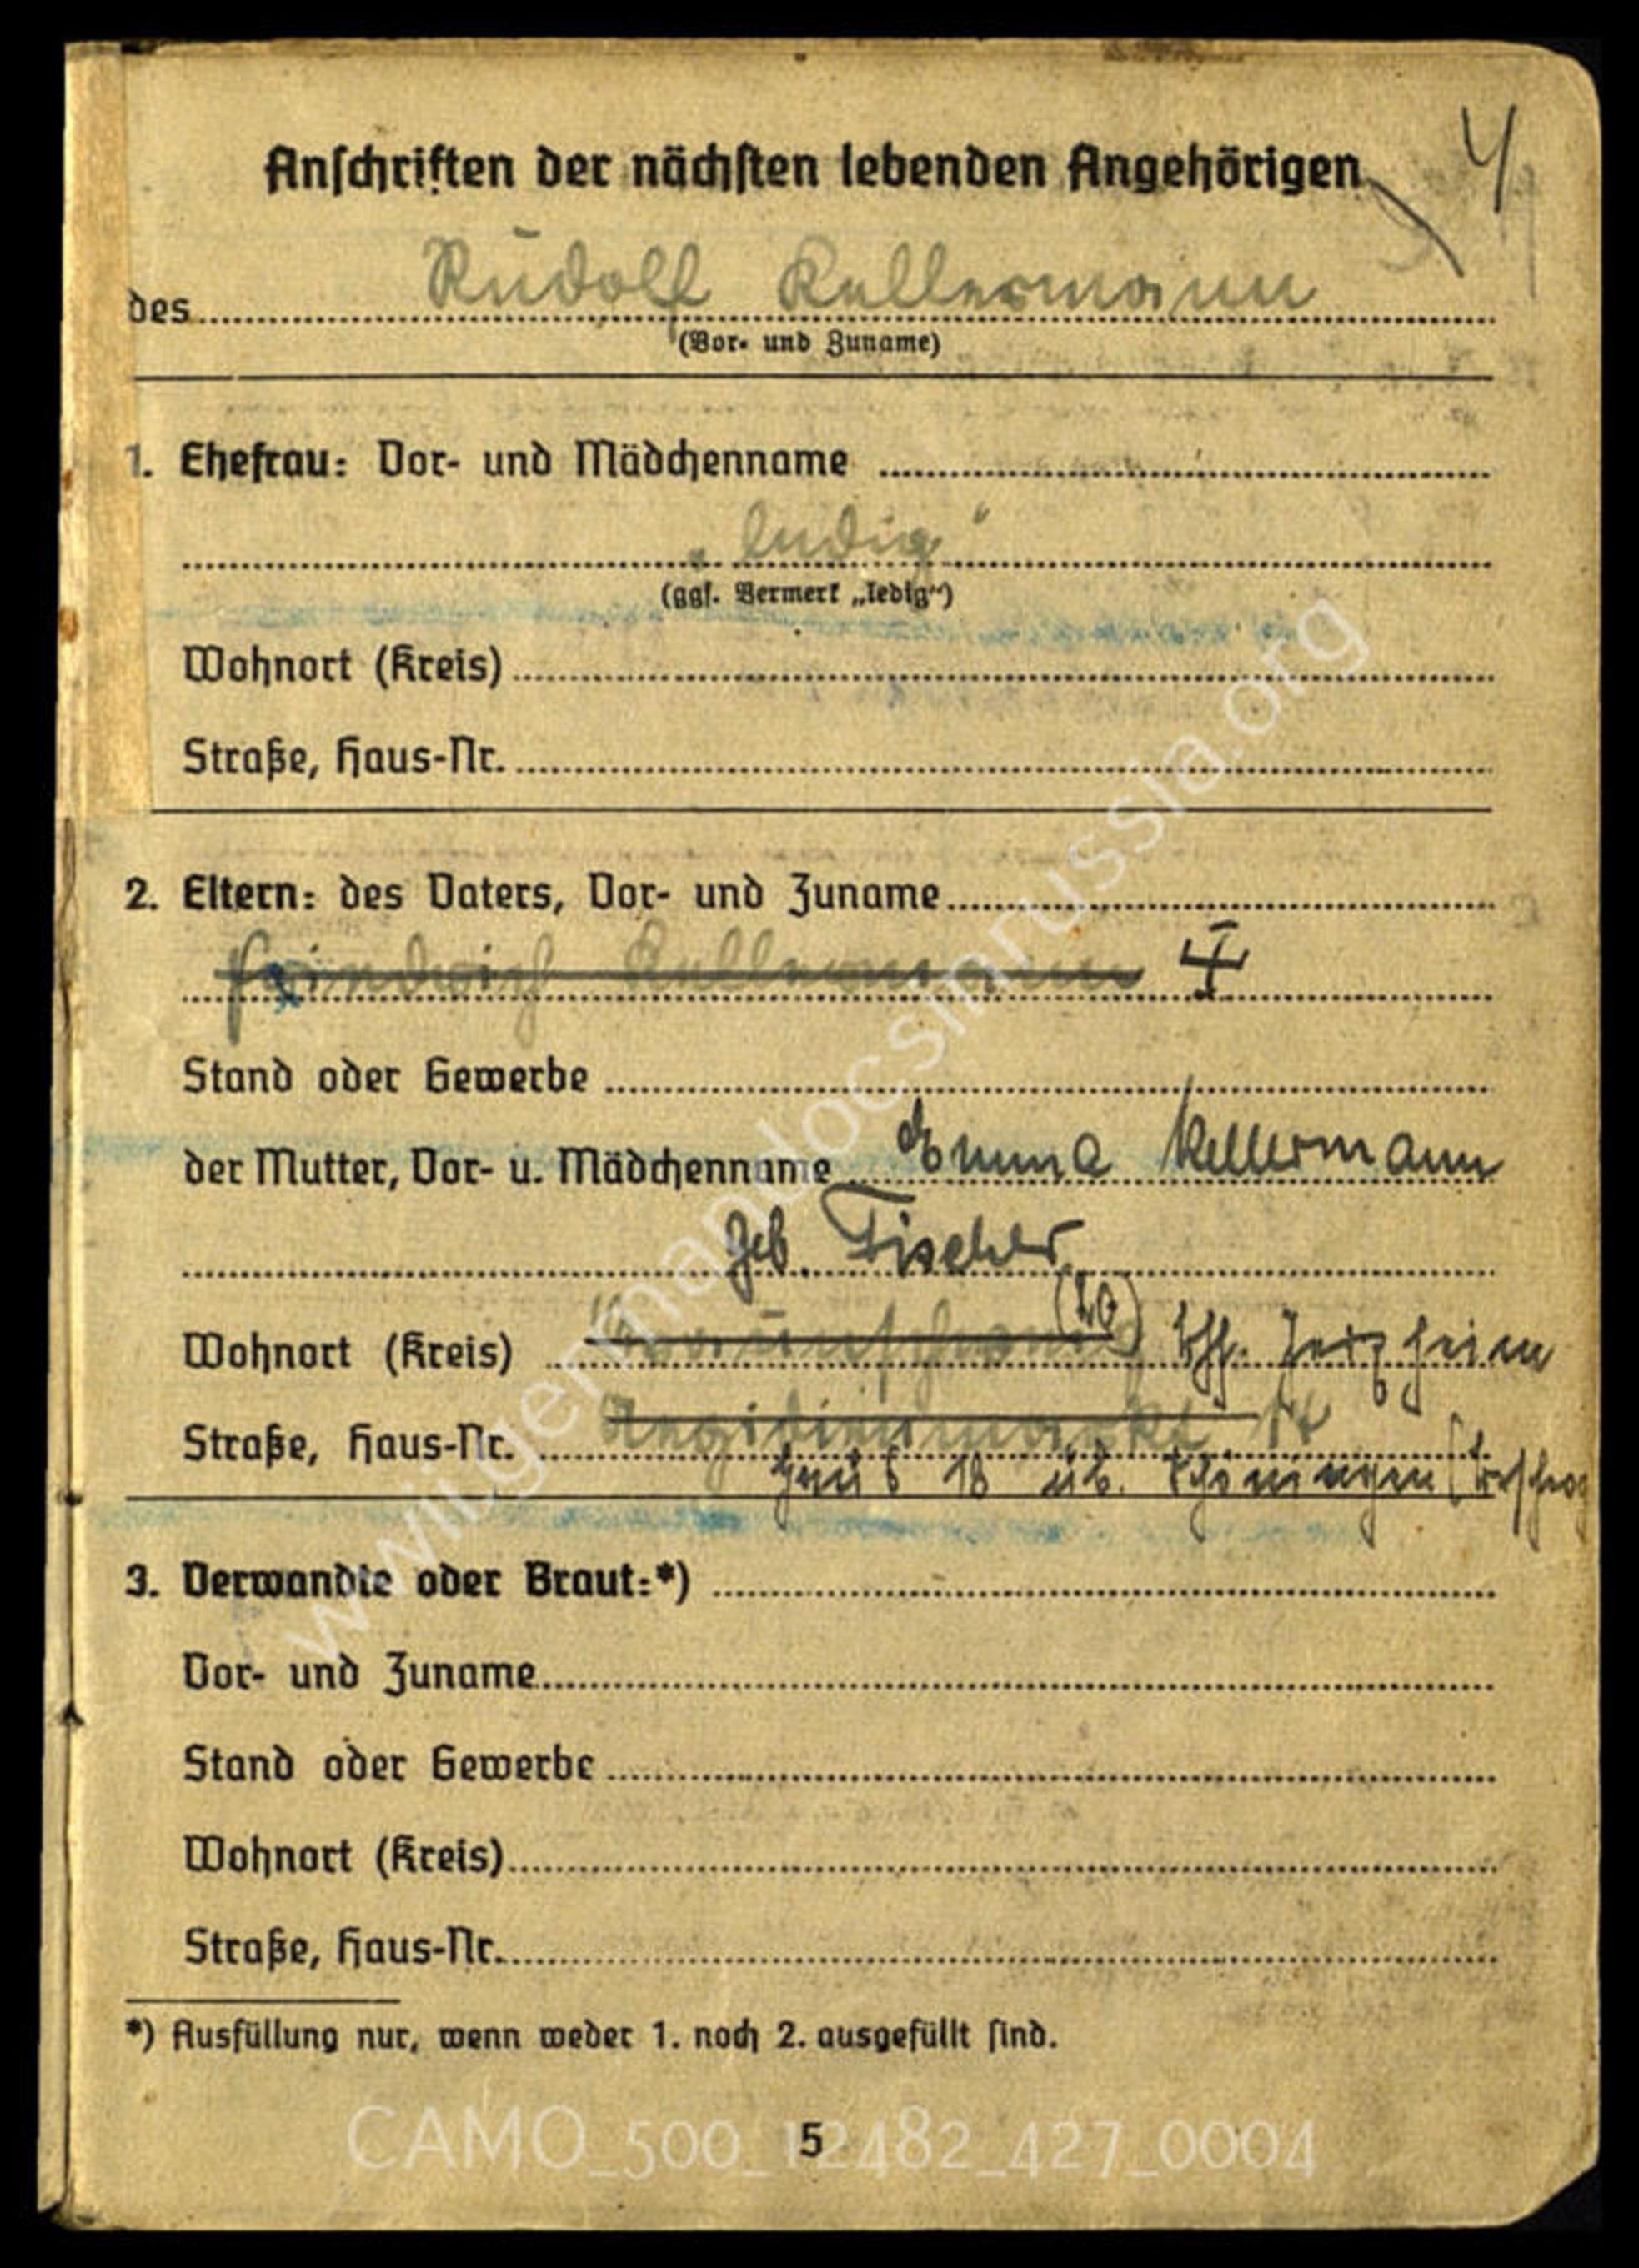 4
Anschriften der nächsten lebenden Angehörigen
des Rudolf Kellermann
(Vor- und Zuname)
1. Ehefrau: Vor- und Mädchenname
„ledig“
(ggf. Vermerk „ledig“)
Wohnort (Kreis)
Straße, Haus-Nr.
2. Eltern: des Vaters, Vor- und Zuname
Friedrich Kellermann
Stand oder Gewerbe
der Mutter, Vor- u. Mädchenname Emma Kellermann
geb. Fischer
Wohnort (Kreis) Braunschweig
Straße, Haus-Nr. Aegidienmarkt
Haus 18 üb. Schöningen
3. Verwandte oder Braut:*)
Vor- und Zuname
Stand oder Gewerbe
Wohnort (Kreis)
Straße, Haus-Nr.
*) Ausfüllung nur, wenn weder 1. noch 2. ausgefüllt sind.
5
CAMO_500_12482_427_0004
www.germandocsinrussia.org